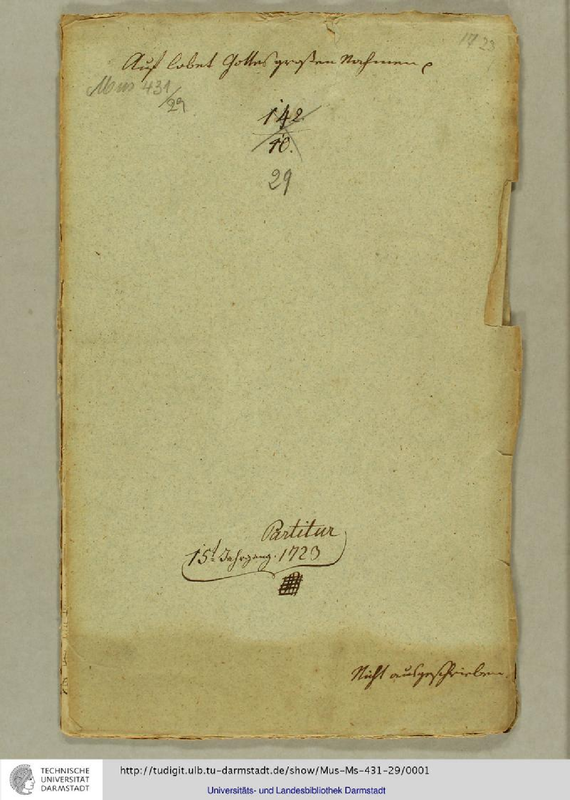 17 23
Auf lobet Gottes großen Nahmen
Mus 431/29
142
10.
29
Partitur
15t Jahrgang. 1723
Nicht ausgeschrieben.
TECHNISCHE
UNIVERSITÄT
DARMSTADT
http://tudigit.ulb.tu-darmstadt.de/show/Mus-Ms-431-29/0001
Universitäts- und Landesbibliothek Darmstadt